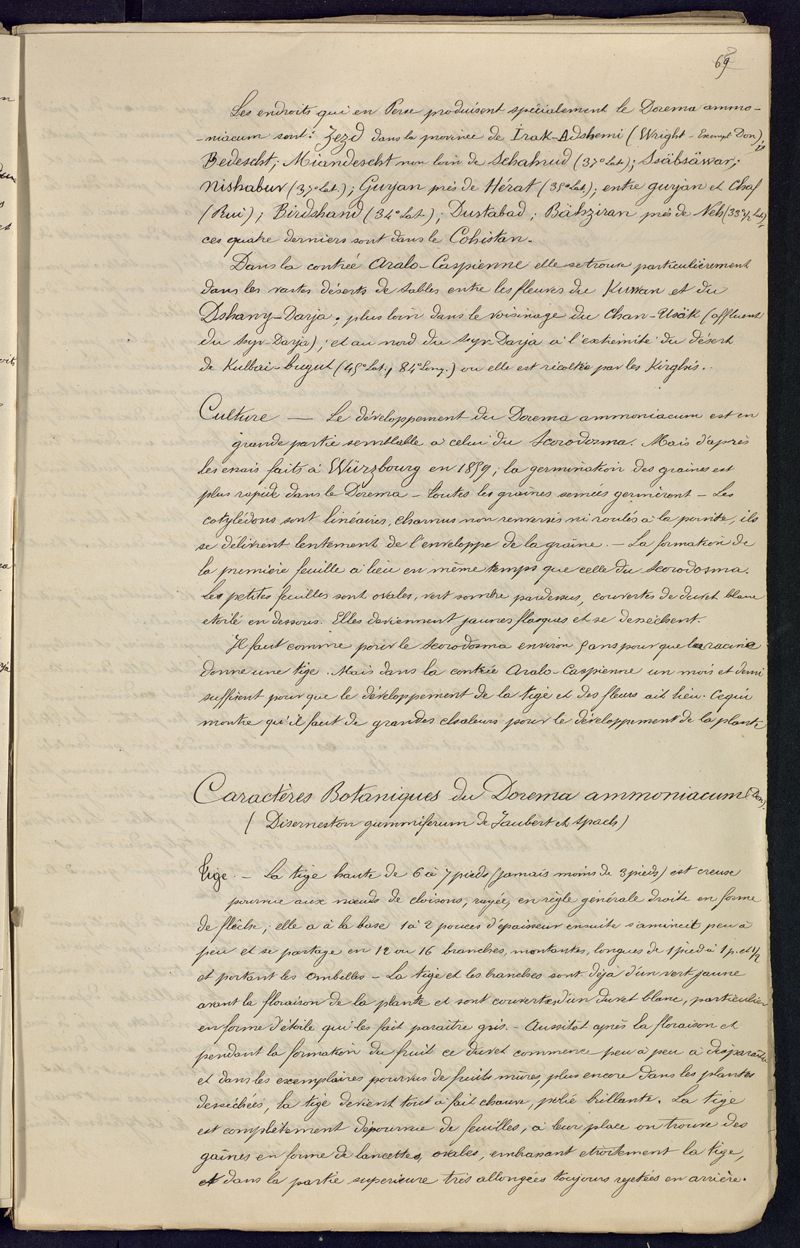 69
Les endroits qui en Perse produisent spécialement le Dorema ammo-
-niacum sont: Jezd dans la province de Irak-Adshemi (Wright - Exempl Don);
Bedescht; Miandescht non loin de Schahrud (37° Lat.); Ssäbsäwar;
Nishabur (37° Lat.); Gurjan près de Hérat (35° Lat.); entre gurjan et Chaf
(Rui); Birdshand (34° Lat.); Dustabad; Bähziran près de Neh (33° 1/2 Lat)
ces quatre derniers sont dans le Cohistan.
Dans la contrée Aralo-Caspienne elle se trouve particulièrement
dans les vastes déserts de sables entre les fleuves du Kuwan et du
Dshany-Darja; plus loin dans le voisinage du Chan-Usäk (affluent
du Syr-Darja); et au nord du Syr-Darja à l'extrémité du désert
de Kulbai-bugut (45° Lat. 84° Long.) où elle est récoltée par les Kirghis.
Culture — Le développement du Dorema ammoniacum est en
grande partie semblable à celui du Scorodosma. Mais d'après
les essais faits à Würzbourg en 1859; la germination des graines est
plus rapide dans le Dorema - toutes les graines semées germèrent - Les
cotylédons sont linéaires, charnus non renversés ni roulés à la pointe, ils
se délivrent lentement de l'enveloppe de la graine. - La formation de
la première feuille a lieu en même temps que celle du Scorodosma.
Les petites feuilles sont ovales, vert sombre pardessus, couvertes de duvet blanc
étoilé en dessous. Elles deviennent jaunes flasques et se dessèchent.
Il faut comme pour le Scorodosma environ 5 ans pour que la racine
donne une tige. Mais dans la contrée Aralo-Caspienne un mois et demi
suffisent pour que le développement de la tige et des fleurs ait lieu. Ce qui
montre qu'il faut de grandes chaleurs pour le développement de la plante
Caractères Botaniques du Dorema ammoniacum (Don)
(Diserneston gummiferum de Jaubert et Spach)
Tige. - La tige haute de 6 à 7 pieds (jamais moins de 3 pieds) est creuse
pourvue aux nœuds de cloisons, rayée, en règle générale droite en forme
de flèche; elle a à la base 1 à 2 pouces d'épaisseur ensuite s'amincit peu à
peu et se partage en 12 ou 16 branches, montantes, longues de 1 pied à 1 p. et 1/2
et portant les ombelles - La tige et les branches sont déjà d'un vert jaune
avant la floraison de la plante et sont couvertes d'un duvet blanc, particulier
en forme d'étoile qui les fait paraître gris. - Aussitôt après la floraison et
pendant la formation du fruit ce duvet commence peu à peu à disparaître
et dans les exemplaires pourvus de fruits mûres, plus encore dans les plantes
desséchées, la tige devient tout à fait chauve, polie brillante. La tige
est complètement dépourvue de feuilles, à leur place on trouve des
gaînes en forme de lancettes, ovales, embrassant étroitement la tige,
et dans la partie supérieure très allongées toujours rejetées en arrière.